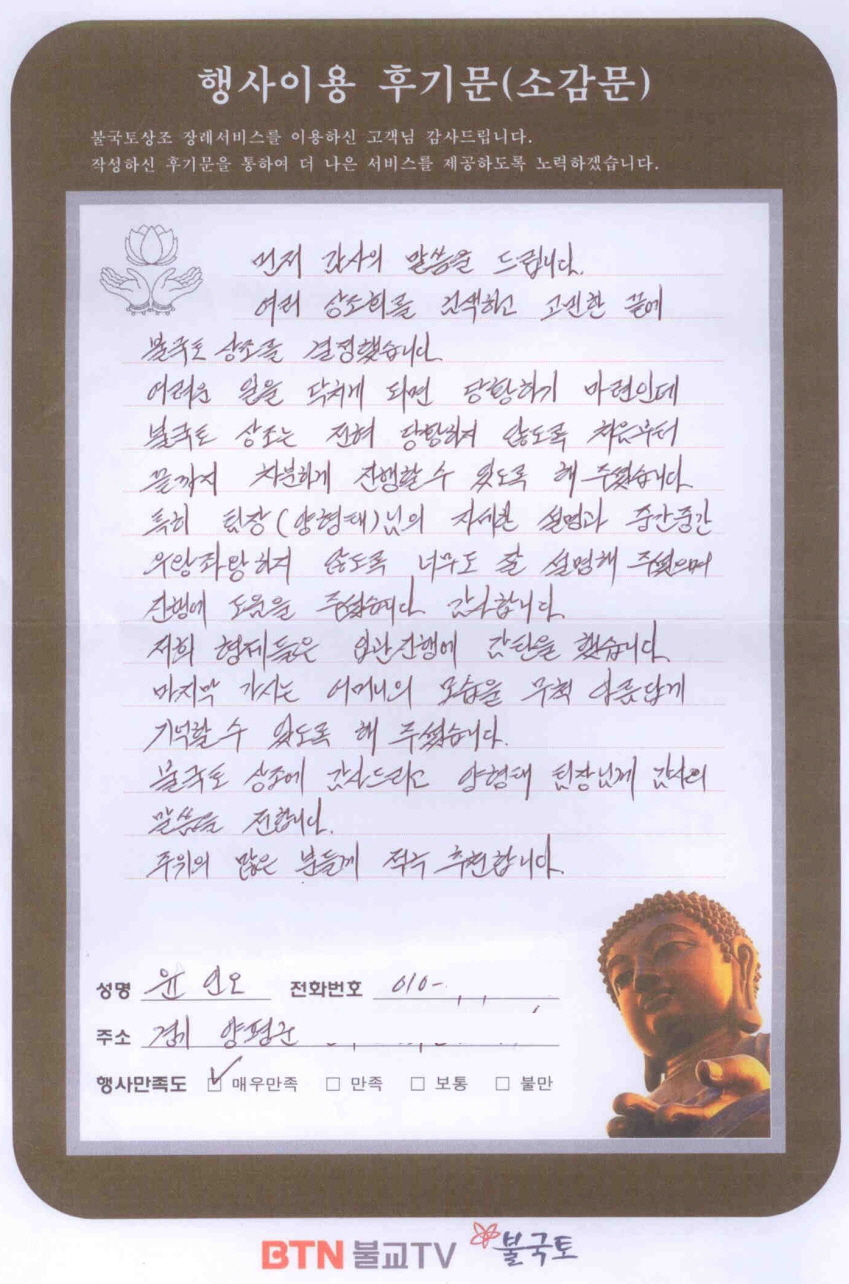 행사이용 후기문(소감문)
불국토상조 장례서비스를 이용하신 고객님 감사드립니다.
작성하신 후기문을 통하여 더 나은 서비스를 제공하도록 노력하겠습니다.
먼저 감사의 말씀을 드립니다.
여러 상조회를 검색하고 고민한 끝에
불국토 상조를 결정했습니다.
어려운 일을 닥치게 되면 당황하기 마련인데
불국토 상조는 전혀 당황하지 않도록 처음부터
끝까지 차분하게 진행할 수 있도록 해 주셨습니다.
특히 팀장(양형태)님의 자세한 설명과 중간중간
우왕좌왕하지 않도록 너무도 잘 설명해 주셨으며
진행에 도움을 주셨습니다. 감사합니다.
저희 형제들은 입관진행에 감탄을 했습니다.
마지막 가시는 어머니의 모습을 무척 아름답게
기억할 수 있도록 해 주셨습니다.
불국토 상조에 감사드리고 양형태 팀장님께 감사의
말씀을 전합니다.
주위의 많은 분들께 적극 추천합니다.
성명 윤인오 전화번호 010-
주소 경기 양평군
행사만족도 ☑ 매우만족 □ 만족 □ 보통 □ 불만
BTN 불교TV 불국토